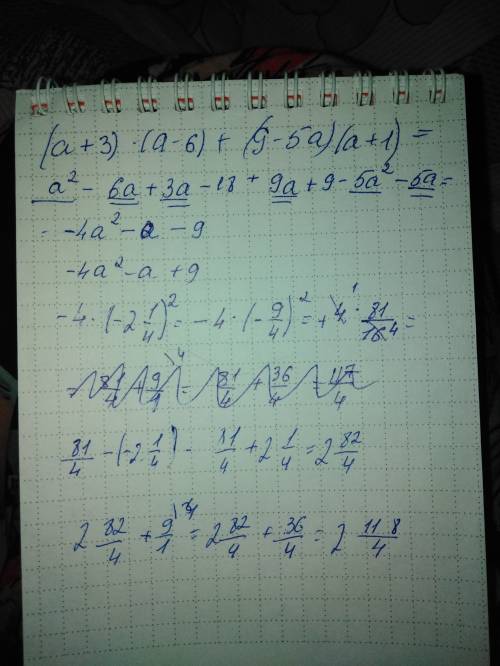 (a+3)·(a-6)+(9-5a)(a+1)=
a² - 6a + 3a - 18 + 9a + 9 - 5a² - 5a =
= -4a² - a - 9
-4a² - a + 9
-4·(-2 1/4)² = -4·(-9/4)² = +4·81/16 4 =
81/4 - (-2 1/4) - 81/4 + 2 1/4 = 2 82/4
2 82/4 + 9/1 = 2 82/4 + 36/4 = 2 118/4